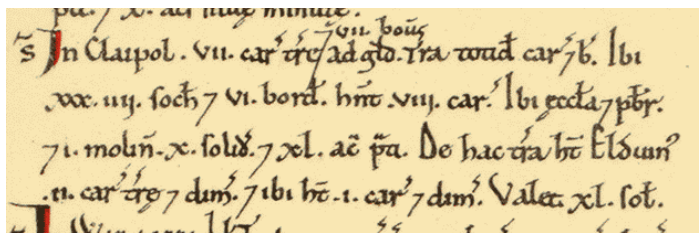 pti. 7 x. ac̄i siluę minutę.
vii. bouū
S̄ In Claipol. vii. car̕ tr̄ę ad gld̄. T̄ra totid̄ car̕ 7 b̕. Ibi
xxx. iiii. soch̄ 7 vi. bord̄. hn̄t .viii. car̕. Ibi ęccl̄a 7 pb̄r.
7 i. molin̄. x. solid̄. 7 xl. ac̄ p̄ti. De hac t̄ra ht̄ Elduin̕
.ii. car̕ tr̄ę 7 dim̄. 7 ibi ht̄ .i. car̕ 7 dim̄. Valet xl. sol̄.